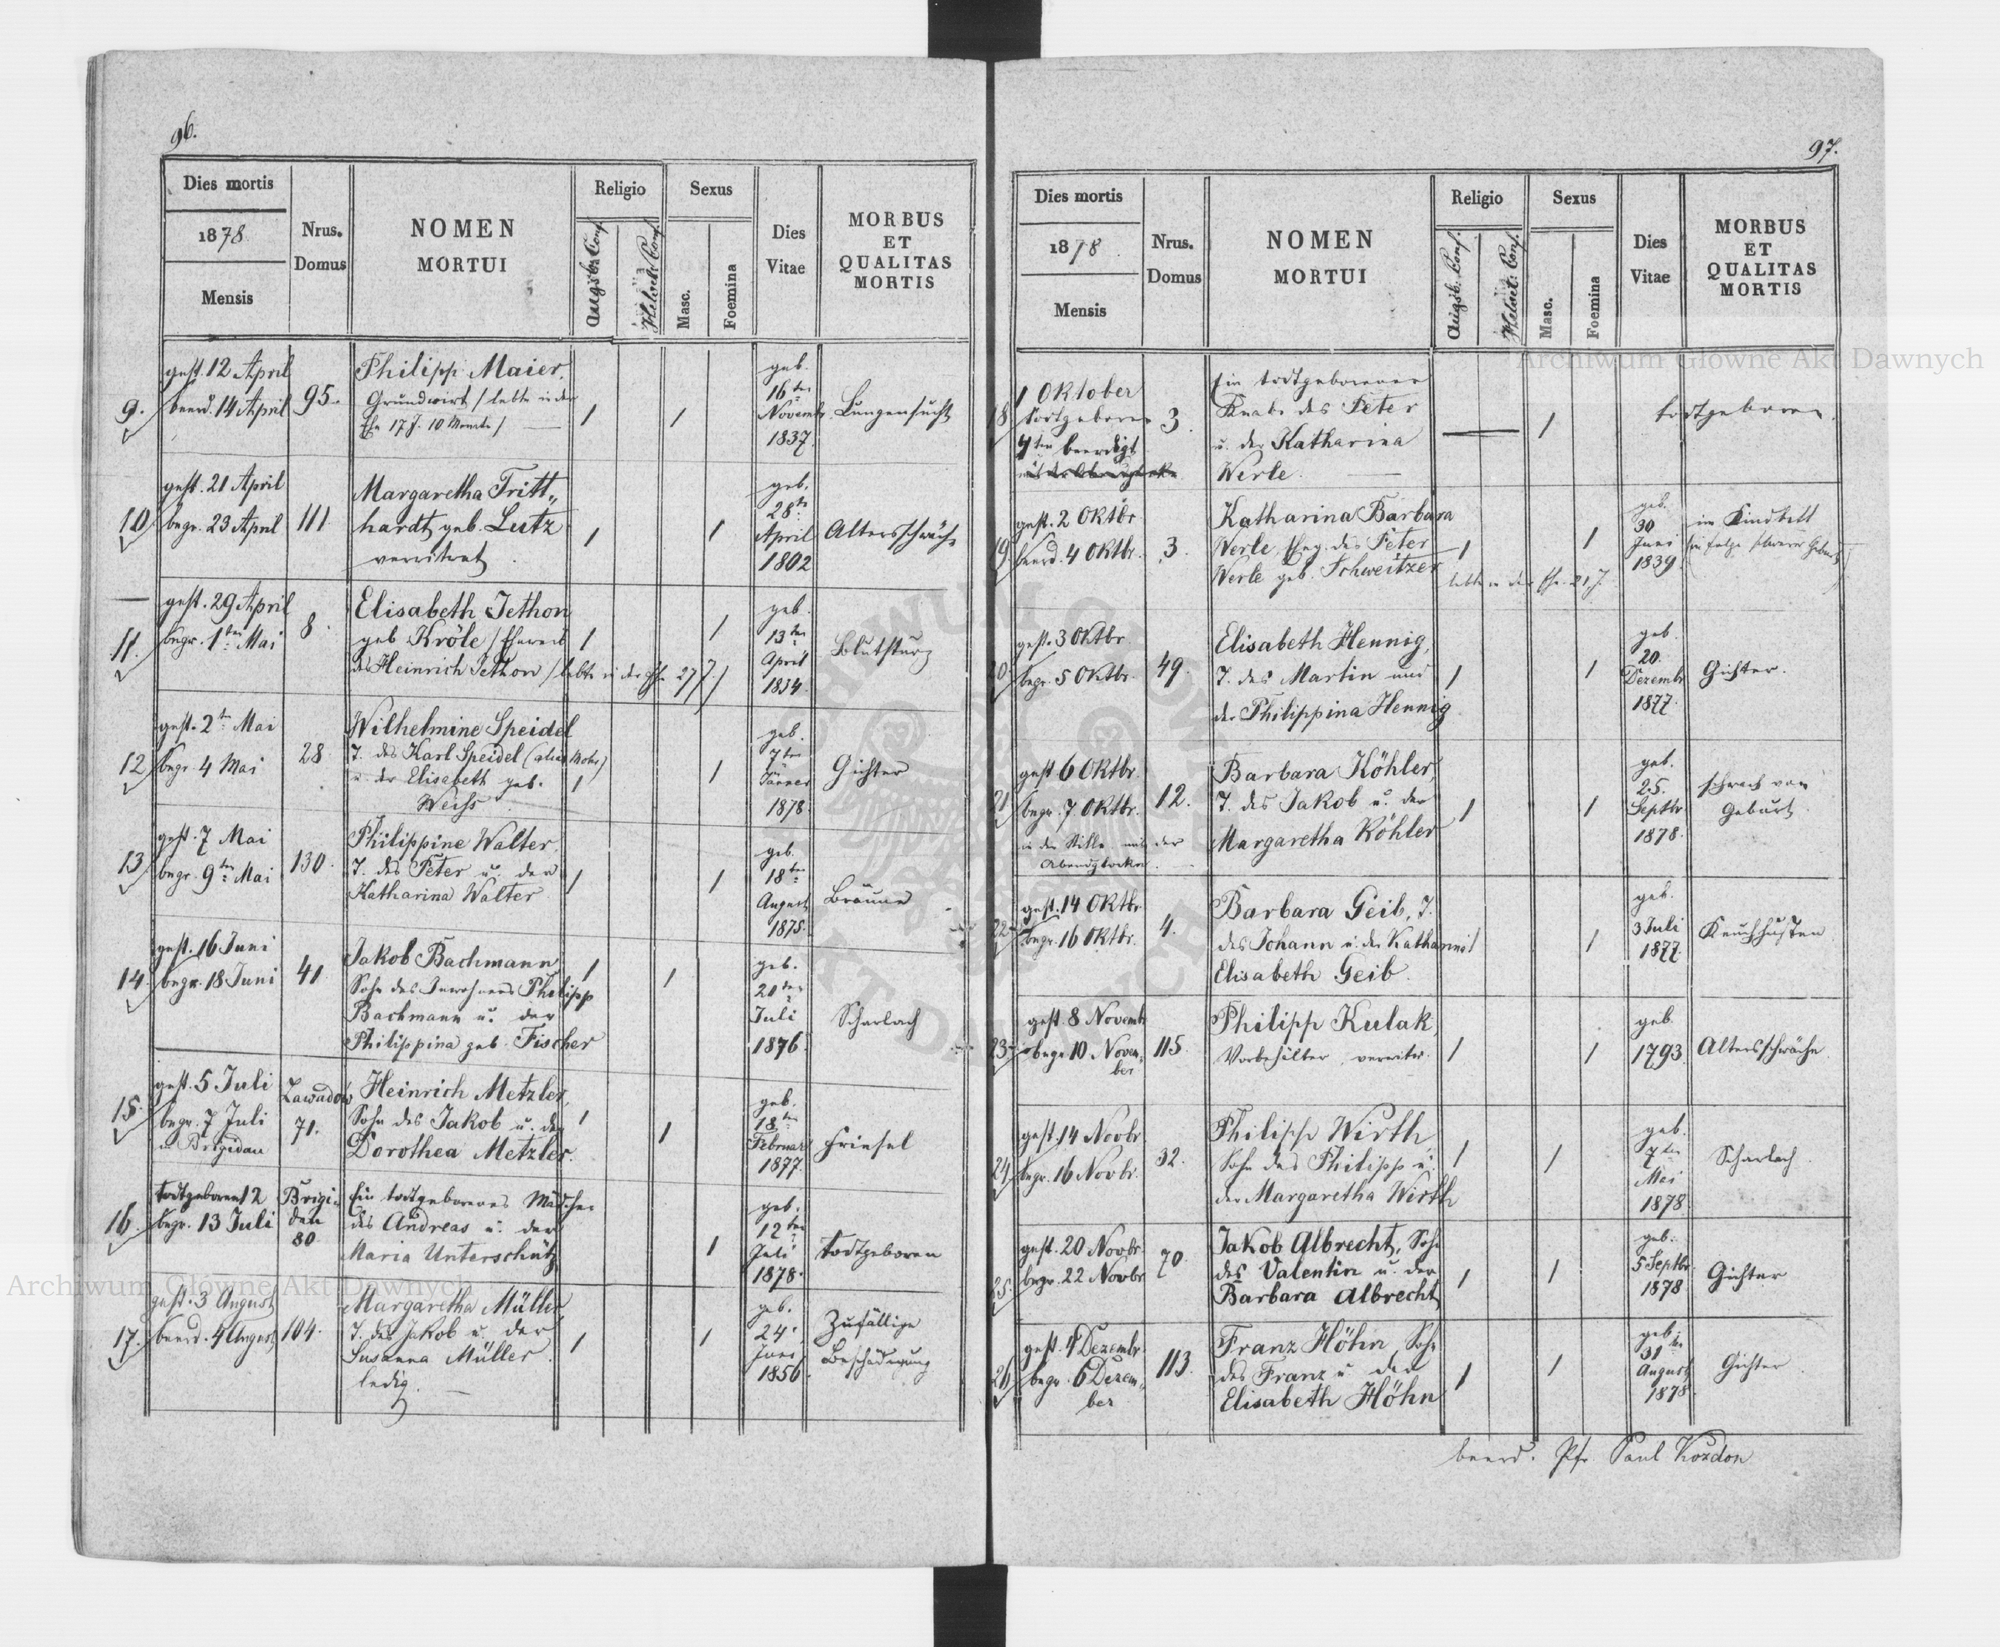 96.
Dies mortis
1878.
Mensis
Nrus.
Domus
NOMEN
MORTUI
Religio
Augsb. Conf.
Helvet. Conf.
Sexus
Masc.
Foemina
Dies
Vitae
MORBUS
ET
QUALITAS
MORTIS
9.
gest. 12 April
beerd. 14 April
95.
Philipp Maier,
Grundwirt / lebte in der
Ehe 17 J. 10 Monate /
geb.
16ten
Novemb
1837.
Lungensucht
10
gest. 21 April
begr. 23 April
111
Margaretha Tritt„
hardt geb. Lutz
verwitwet
geb.
28ten
April
1802
Altersschwäche
11.
gest. 29 April
begr. 1ten Mai
8.
Elisabeth Jethon
geb. Kröle / Eheweib
des Heinrich Jethon / lebte in der Ehe 27 J. /
geb.
13ten
April
1834.
Blutsturz
12
gest. 2ten Mai
begr. 4 Mai
28
Wilhelmine Speidel
T. des Karl Speidel (alias Mohr)
u. der Elisabeth geb.
Weiss
geb.
7ten
Jänner
1878.
Gichter
13
gest. 7 Mai
begr. 9ten Mai
130.
Philippine Walter,
T. des Peter u. der
Katharina Walter
geb.
18ten
August
1875.
Bräune
14
gest. 16 Juni
begr. 18 Juni
41
Jakob Bachmann
Sohn des Inwohners Philipp
Bachmann u. der
Philippina geb. Fischer
geb.
20ten
Juli
1876.
Scharlach
15.
gest. 5 Juli
begr. 7 Juli
in Brigidau
Zawadow
71.
Heinrich Metzler,
Sohn des Jakob u. der
Dorothea Metzler.
geb.
18ten
Februar
1877.
Friesel
16.
todtgeboren 12
begr. 13 Juli
Brigi„
dau
80.
Ein todtgeborenes Mädchen
des Andreas u. der
Maria Unterschütz
geb.
12ten
Juli
1878.
todtgeboren
17.
gest. 3 August
beerd. 4 August
104.
Margaretha Müller
T. des Jakob u. der
Susanna Müller.
ledig.
geb.
24.
Juni
1856.
Zufällige
Beschädigung
97.
Dies mortis
1878.
Mensis
Nrus.
Domus
NOMEN
MORTUI
Religio
Augsb. Conf.
Helvet. Conf.
Sexus
Masc.
Foemina
Dies
Vitae
MORBUS
ET
QUALITAS
MORTIS
18
1 Oktober
todtgeboren
4ten beerdigt
3.
Ein todtgeborener
Knabe des Peter
u. der Katharina
Werle.
todtgeboren.
19
gest. 2 Oktbr
beerd. 4 Oktbr.
3.
Katharina Barbara
Werle, Eheg. des Peter
Werle geb. Schweitzer
lebte in der Ehe 21 J.
geb.
30
Juni
1839
im Kindbett
in Folge schwerer Geburt
20
gest. 3 Oktbr.
begr. 5 Oktbr.
49.
Elisabeth Hennig,
T. des Martin und
der Philippina Hennig
geb.
20.
Dezembr
1877.
Gichter.
21
gest. 6 Oktbr.
begr. 7 Oktbr.
in der Stille mit der
Abendglocke.
12.
Barbara Köhler,
T. des Jakob u. der
Margaretha Köhler
geb.
25.
Septbr
1878.
schwach von
Geburt.
22
gest. 14 Oktbr.
begr. 16 Oktbr.
4.
Barbara Geib, T.
des Johann u. der Katharina
Elisabeth Geib.
geb.
3 Juli
1877.
Keuchhusten
23
gest. 8 Novemb
begr. 10 Novem„
ber
115.
Philipp Kulak,
Vorbehälter, verwitw.
geb.
1793.
Altersschwäche.
24
gest. 14 Novbr.
begr. 16 Novbr.
32.
Philipp Wirth
Sohn des Philipp u.
der Margaretha Wirth
geb.
7ten
Mai
1878
Scharlach.
25.
gest. 20 Novbr.
begr. 22 Novbr
70.
Jakob Albrecht, Sohn
des Valentin u. der
Barbara Albrecht
geb.
5 Septbr.
1878
Gichter
26
gest. 4 Dezembr
begr. 6 Dezem„
ber
113.
Franz Höhn, Sohn
des Franz u. der
Elisabeth Höhn
geb.
31ten
August
1878.
Gichter
beerd. Pfr Paul Kozdon
Archiwum Główne Akt Dawnych
Archiwum Główne Akt Dawnych